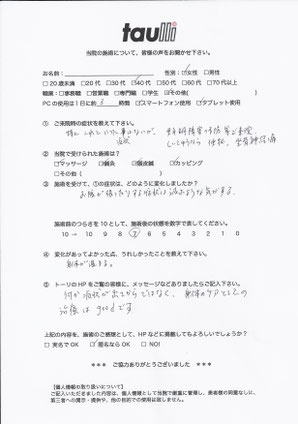 taulli
当院の施術について、皆様の声をお聞かせ下さい。
お名前: 性別: ☑女性 □男性
□20歳未満 □20代 □30代 ☑40代 □50代 □60代 □70代以上
職業: □事務職 □営業職 □専門職 □学生 ☑その他( )
PCの使用は1日に約 3 時間 ☑スマートフォン使用 □タブレット使用
① ご来院時の症状を教えて下さい。
② 当院で受けられた施術は?
□マッサージ ☑鍼灸 □頭皮鍼 ☑カッピング
□その他( )
③ 施術を受けて、①の症状は、どのように変化しましたか?
施術前のつらさを10として、施術後の状態を数字で表してください。
10 → 10 9 8 7 6 5 4 3 2 1 0
④ 変化があってよかった点、うれしかったことを教えて下さい。
身体が温まる。
⑤ トーリのHPをご覧の皆様に、メッセージなどありましたらご記入下さい。
何か症状が出てからではなく、身体のケアとしての
治療は goodです
上記の内容を、施術のご感想として、HPなどに掲載してもよろしいでしょうか?
□実名でOK ☑匿名ならOK □NO!
*** ご協力ありがとうございました ***
【個人情報の取り扱いについて】
ご記入いただきました内容は、個人情報として当院で厳重に管理し、患者様の同意なしに、
第三者への開示・提供や、他の目的での使用は致しません。